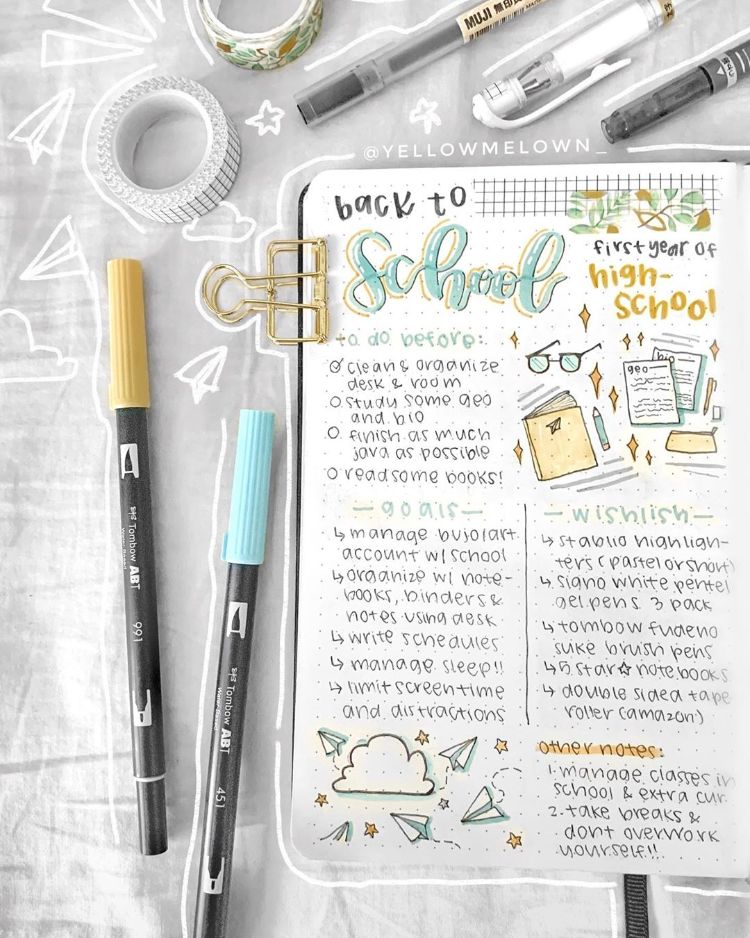 MUJI 無印良
@YELLOWMELOWN_
back to
school
first year of
high-
school
to do before:
clean & organize
desk & room
study some geo
and bio
finish as much
java as possible
read some books!
geo
bio
— goals —
↳ manage bujo/art
account w/ school
↳ organize w/ note-
books, binders &
notes using desk
↳ write schedules
↳ manage sleep!!
↳ limit screentime
and distractions
— wishlish —
↳ stablio highligh-
ters (pastel or short)
↳ signo white pentel
gel pens 3 pack
↳ tombow fudeno
suke brush pens
↳ 5 star☆notebooks
↳ double sided tape
roller (amazon)
other notes:
1. manage classes in
school & extra cur.
2. take breaks &
dont overwork
yourself!!
Tombow ABT
991
Tombow ABT
451